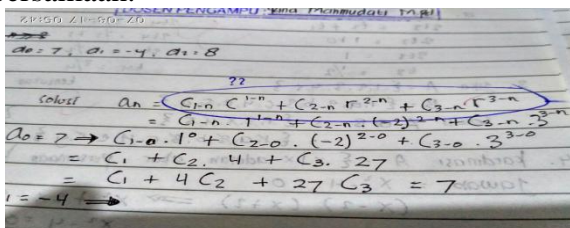 DOSEN PENGAMPU
a₀ = 7, a₁ = -4, a₂ = 8
??
Solusi aₙ = C₁₋ₙ r¹⁻ⁿ + C₂₋ₙ r²⁻ⁿ + C₃₋ₙ r³⁻ⁿ
= C₁₋ₙ . 1¹⁻ⁿ + C₂₋ₙ . (-2)²⁻ⁿ + C₃₋ₙ . 3³⁻ⁿ
a₀ = 7 → C₁₋₀ . 1⁰ + C₂₋₀ . (-2)²⁻⁰ + C₃₋₀ . 3³⁻⁰
= C₁ + C₂ . 4 + C₃ . 27
= C₁ + 4 C₂ + 27 C₃ = 7
1 = -4 →